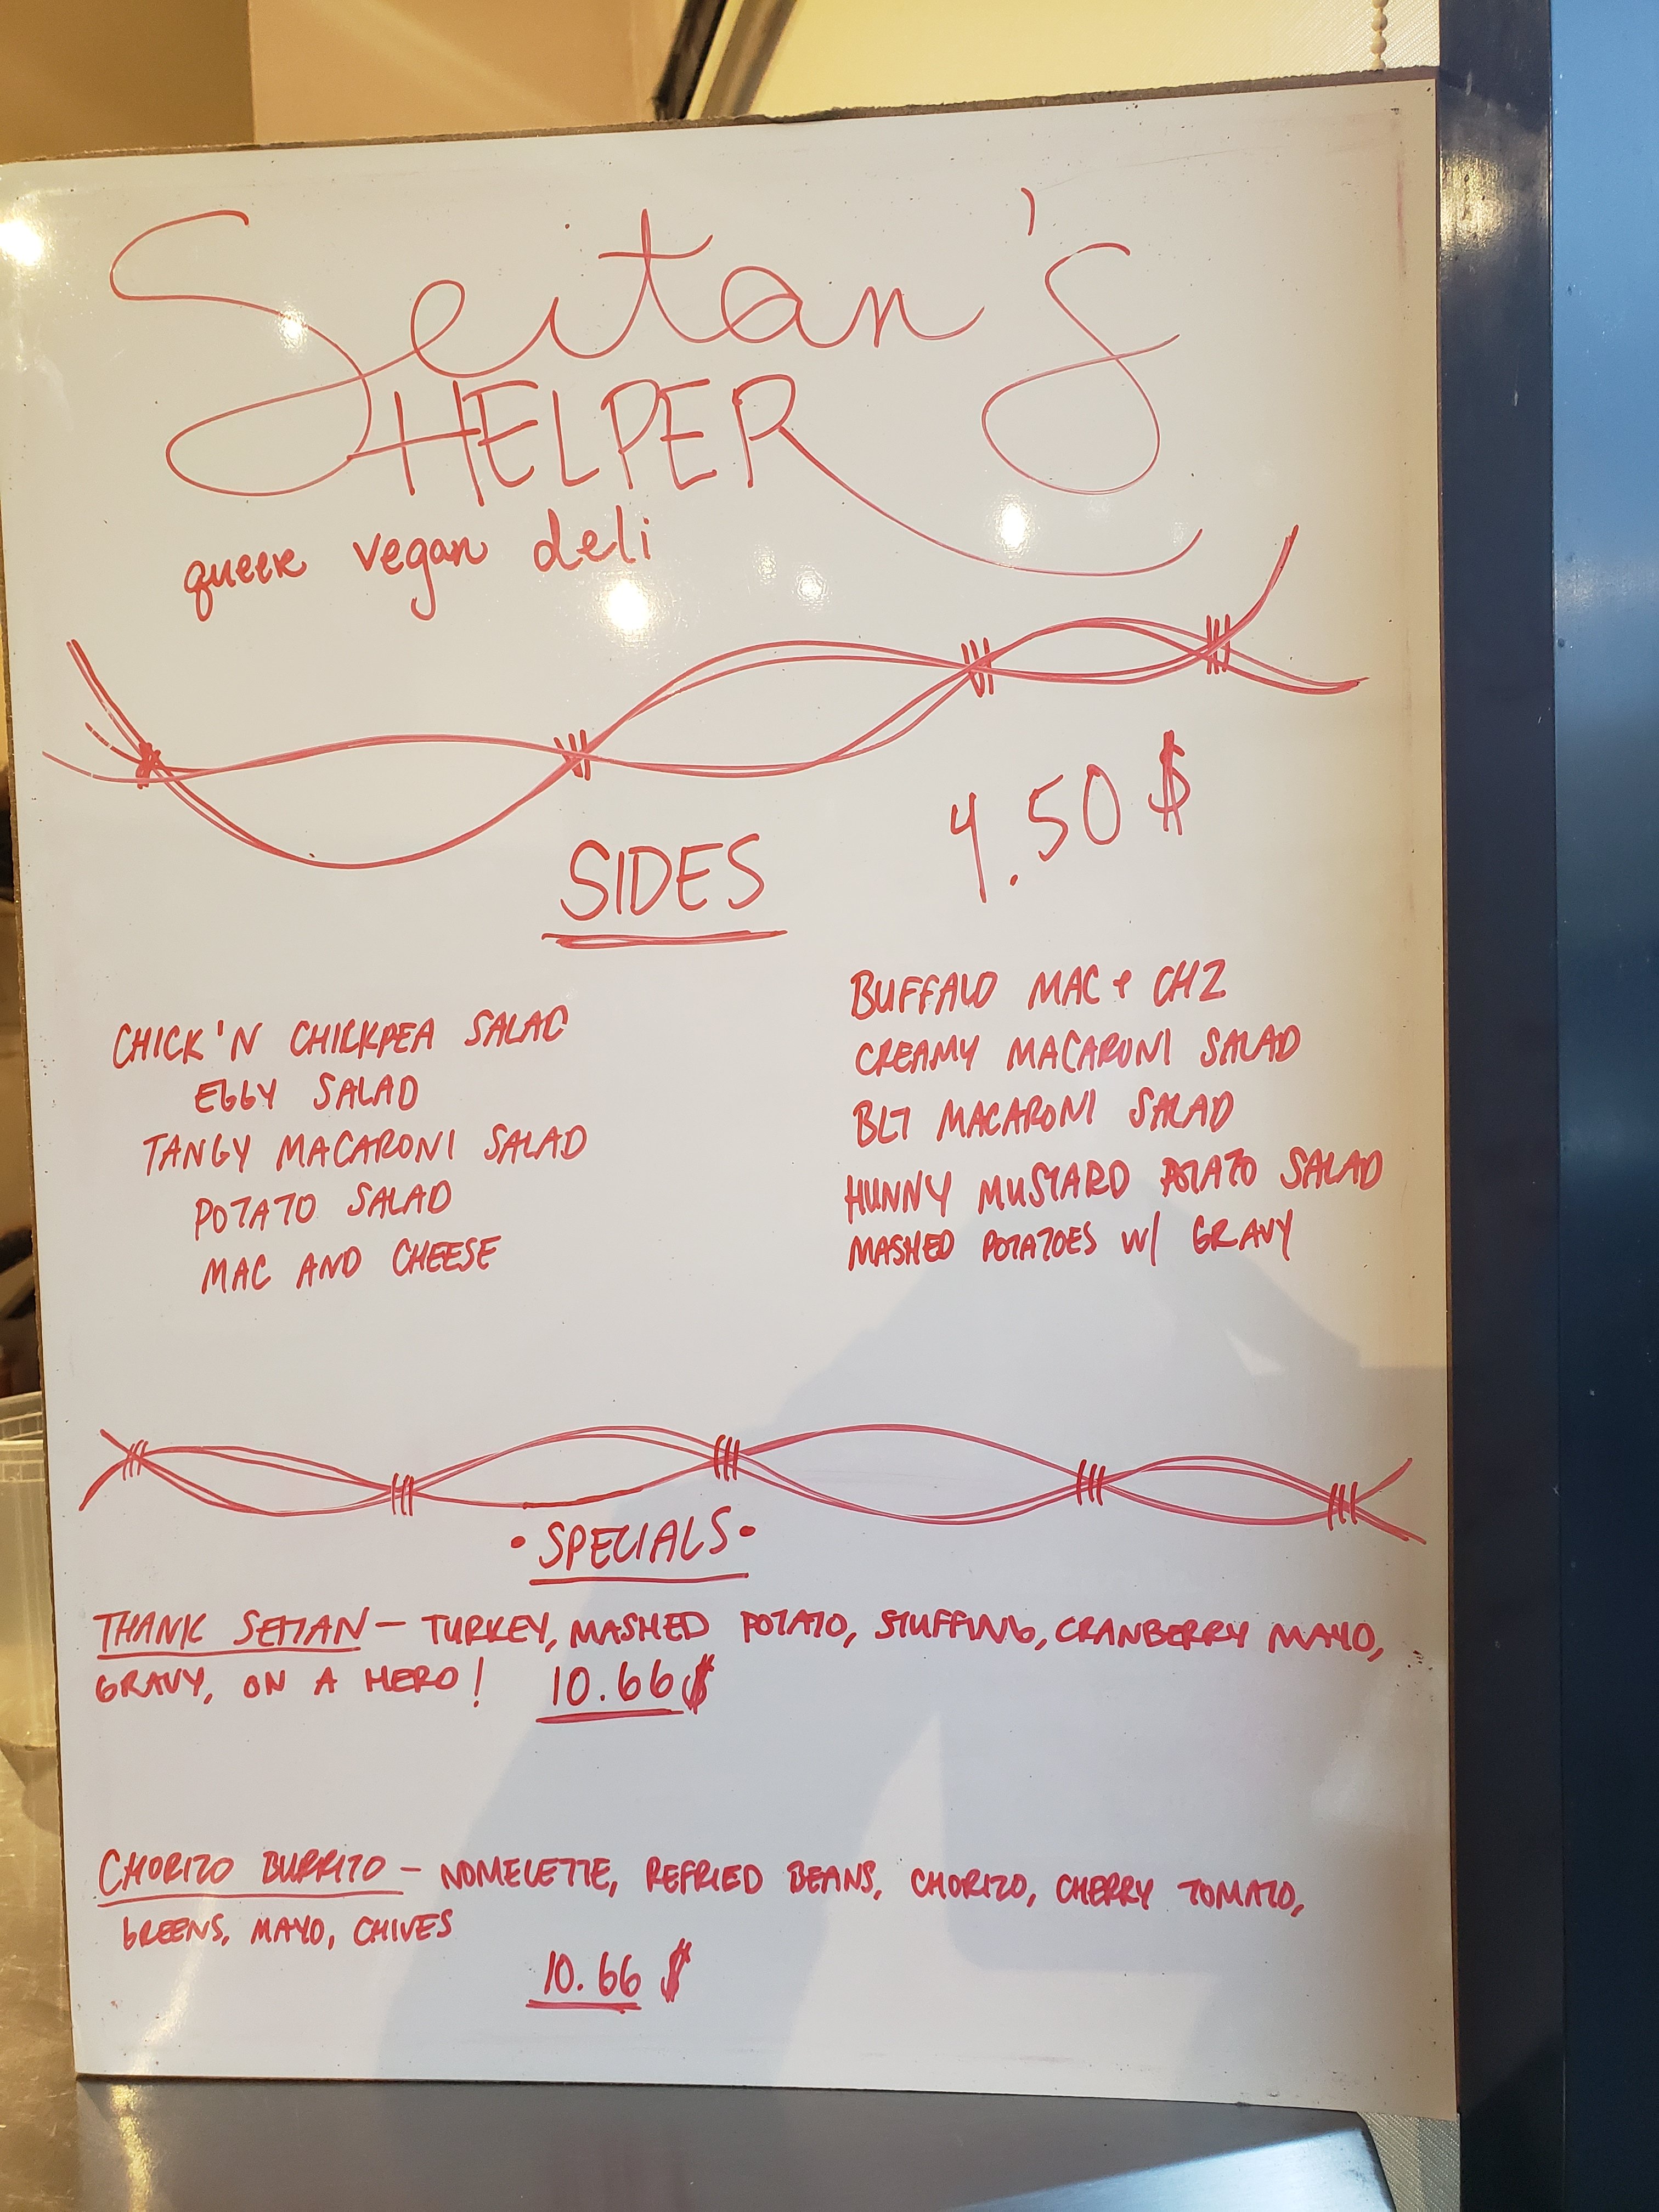 Seitan's
HELPER
queer vegan deli
SIDES 4.50 $
CHICK'N CHICKPEA SALAD
EGGY SALAD
TANGY MACARONI SALAD
POTATO SALAD
MAC AND CHEESE
BUFFALO MAC + CHZ
CREAMY MACARONI SALAD
BLT MACARONI SALAD
HUNNY MUSTARD POTATO SALAD
MASHED POTATOES W/ GRAVY
• SPECIALS •
THANK SEITAN - TURKEY, MASHED POTATO, STUFFING, CRANBERRY MAYO,
GRAVY, ON A HERO! 10.66 $
CHORIZO BURRITO - NOMELETTE, REFRIED BEANS, CHORIZO, CHERRY TOMATO,
GREENS, MAYO, CHIVES
10.66 $